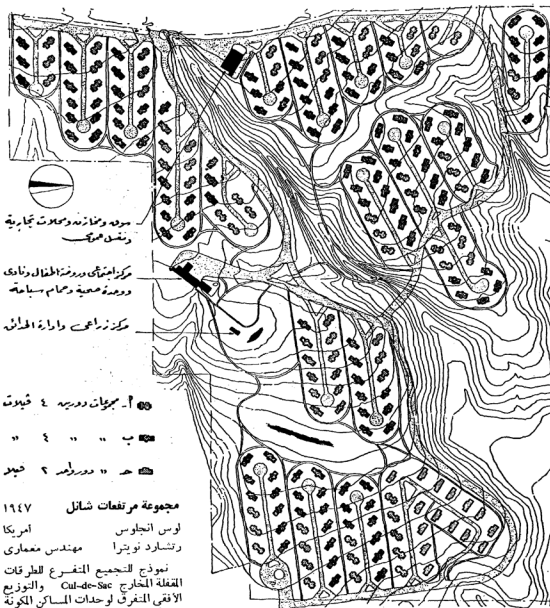 سوق ومخازن ومحلات تجارية
مركز اجتماعى وروضة اطفال ونادى
ووحدة صحية وحمام سباحة
مركز زراعى وادارة الحدائق
أ - مجموعات دورين ٤ فيلات
ب " " ٤ "
حـ " دور واحد ٢ فيلا
مجموعة مرتفعات شانل ١٩٤٧
لوس انجلوس أمريكا
رتشارد نويترا مهندس معمارى
نموذج للتجميع المتفرع للطرقات
المقفلة المخارج Cul-de-Sac والتوزيع
الأفقى المتفرق لوحدات المساكن المكونة